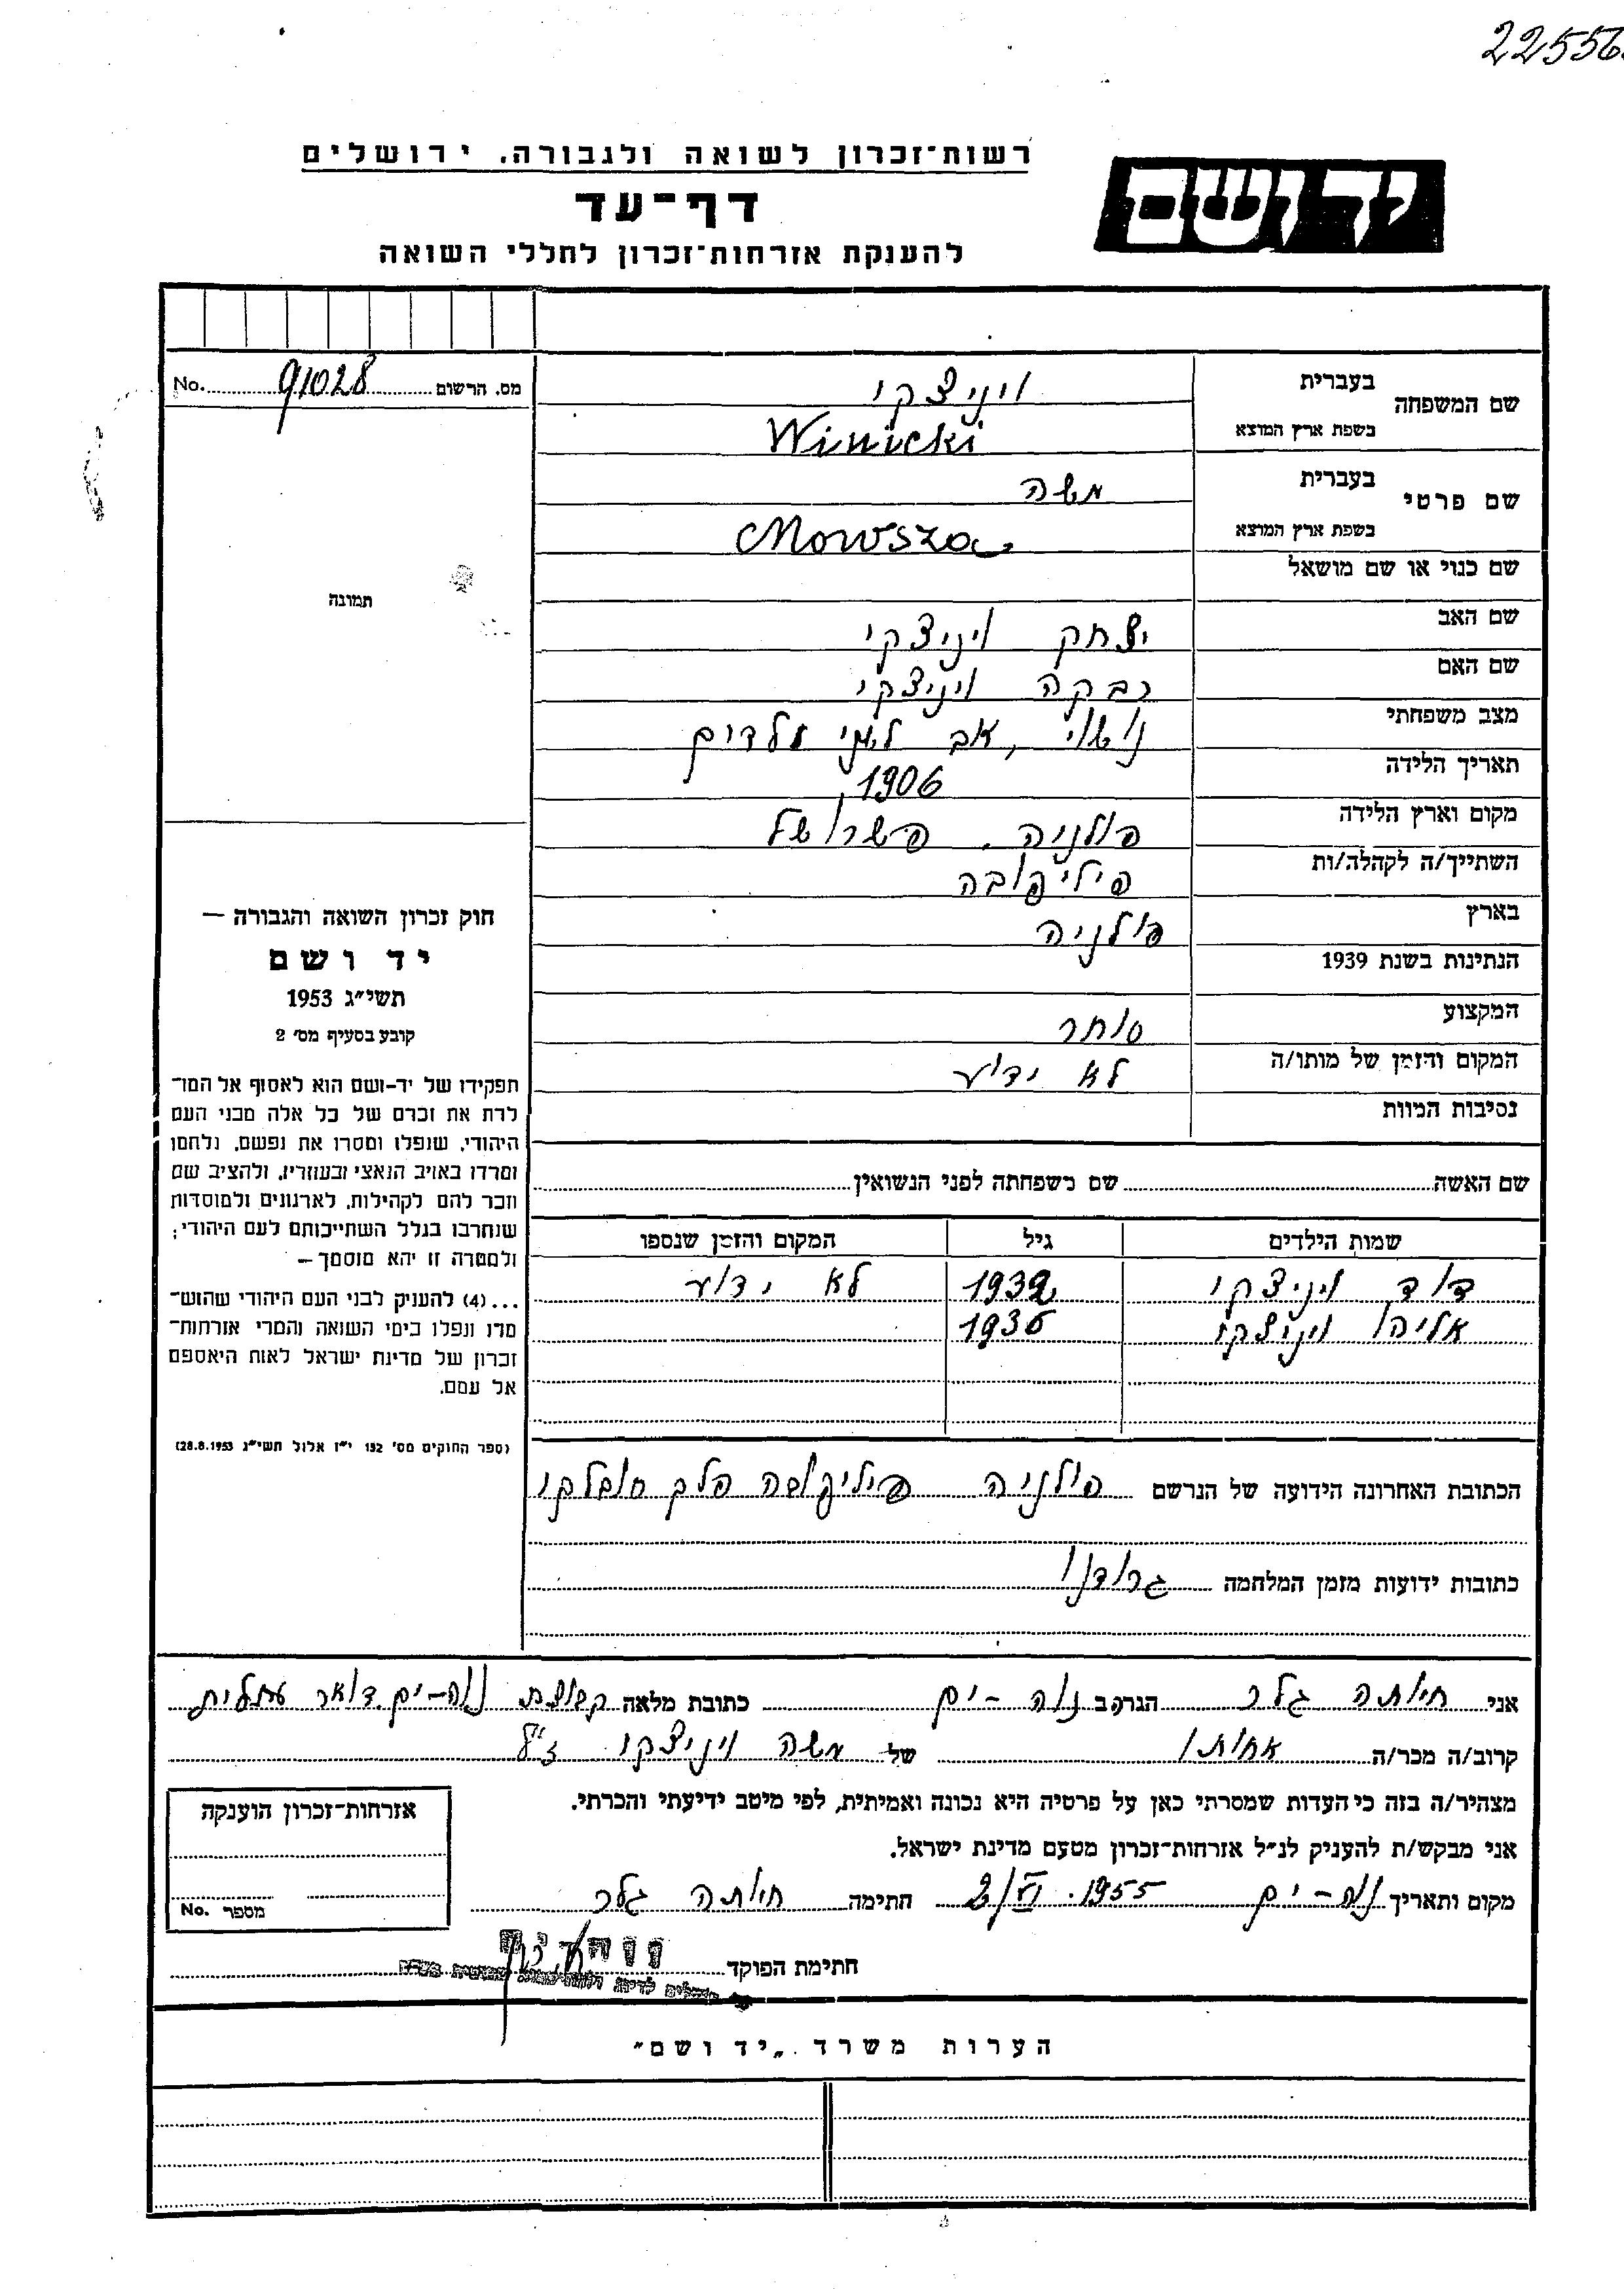 22556
רשות־זכרון לשואה ולגבורה. ירושלים
יד ושם
דף־עד
להענקת אזרחות־זכרון לחללי השואה
מס. הרשום 91028 No.
שם המשפחה
בעברית ויניצקי
בשפת ארץ המוצא Winicki
שם פרטי
בעברית משה
בשפת ארץ המוצא Mowsza
שם כנוי או שם מושאל
תמונה
שם האב יצחק ויניצקי
שם האם רבקה ויניצקי
מצב משפחתי נשוי, אב לשני ילדים
תאריך הלידה 1906
מקום וארץ הלידה פולניה.
השתייך/ה לקהלה/ות פיליפובה
בארץ פולניה
הנתינות בשנת 1939
המקצוע סוחר
המקום והזמן של מותו/ה לא ידוע
נסיבות המוות
חוק זכרון השואה והגבורה —
יד ושם
תשי״ג 1953
קובע בסעיף מס׳ 2
תפקידו של יד-ושם הוא לאסוף אל המו־
לדת את זכרם של כל אלה מבני העם
היהודי, שנפלו ומסרו את נפשם, נלחמו
ומרדו באויב הנאצי ובעוזריו, ולהציב שם
וזכר להם לקהילות, לארגונים ולמוסדות
שנחרבו בגלל השתייכותם לעם היהודי;
ולמטרה זו יהא מוסמך —
...(4) להעניק לבני העם היהודי שהוש־
מדו ונפלו בימי השואה והמרי אזרחות־
זכרון של מדינת ישראל לאות היאספם
אל עמם.
(ספר החוקים מס׳ 132 י״ז אלול תשי״ג 28.8.1953)
שם האשה שם משפחתה לפני הנשואין
שמות הילדים גיל המקום והזמן שנספו
דוד ויניצקי 1932 לא ידוע
אליהו ויניצקי 1936
הכתובת האחרונה הידועה של הנרשם פולניה פיליפובה פלך סובלקי
כתובות ידועות מזמן המלחמה גרודנו
אני חיותה גלר הגר/ה ב נוה-ים כתובת מלאה קבוצת נוה-ים. דואר עתלית
קרוב/ה מכר/ה אחותו של משה ויניצקי ז״ל
מצהיר/ה בזה כי העדות שמסרתי כאן על פרטיה היא נכונה ואמיתית, לפי מיטב ידיעתי והכרתי.
אני מבקש/ת להעניק לנ״ל אזרחות־זכרון מטעם מדינת ישראל.
מקום ותאריך נוה-ים 2/VI 1955. חתימה חיותה גלר
חתימת הפוקד
נוה ים
אזרחות־זכרון הוענקה
מספר No.
הערות משרד „יד ושם״